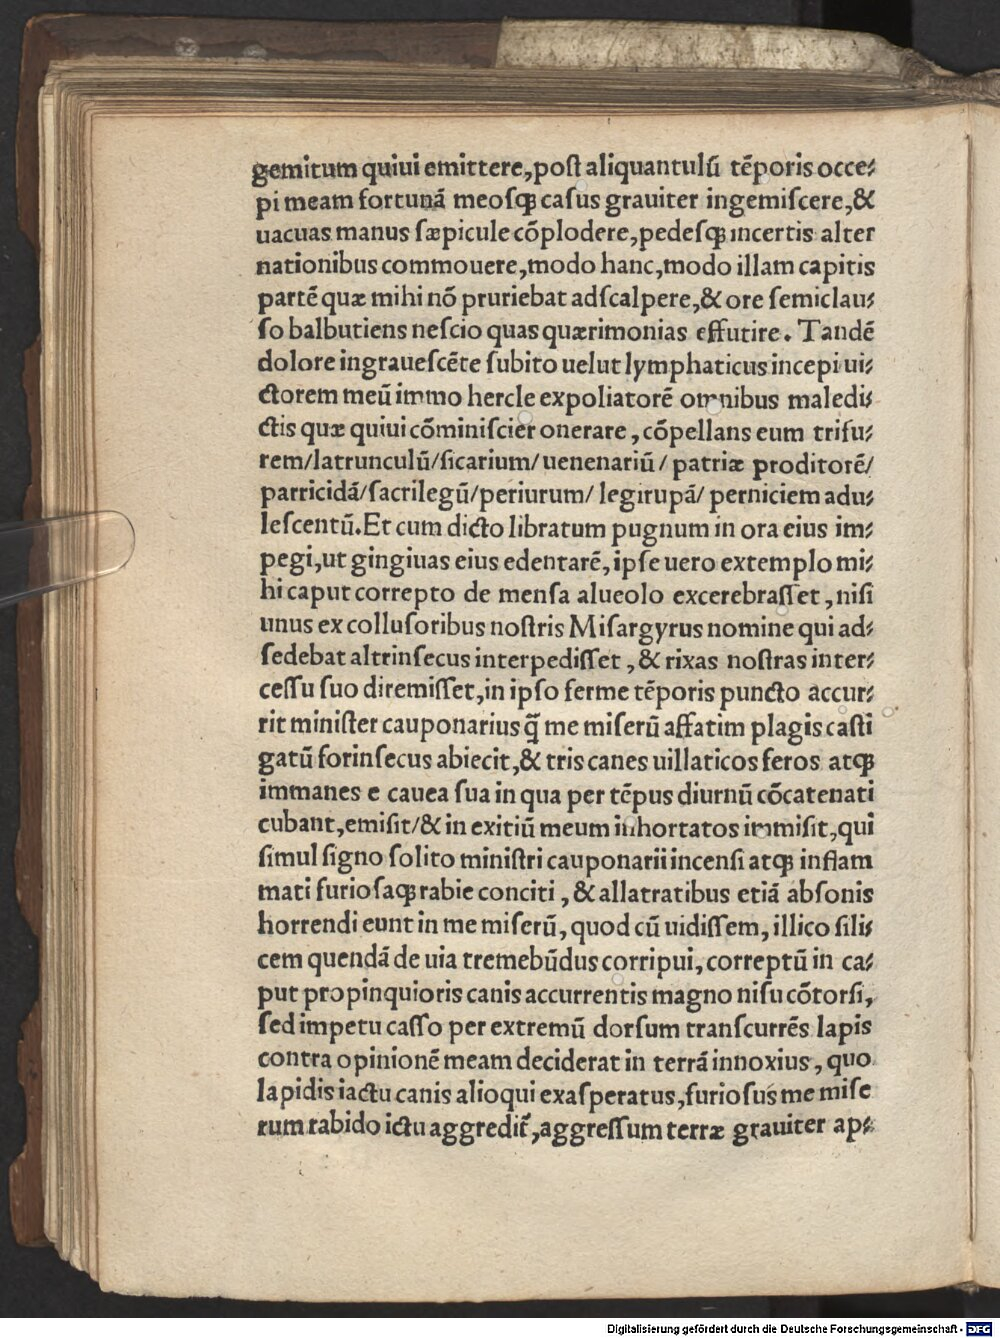 gemitum quiui emittere,poſt aliquantulū tēporis occe⸗
pi meam fortunā meoſqꝫ caſus grauiter ingemiſcere,&
uacuas manus ſæpicule cōplodere,pedeſqꝫ incertis alter
nationibus commouere,modo hanc,modo illam capitis
partē quæ mihi nō pruriebat adſcalpere,& ore ſemiclau⸗
ſo balbutiens neſcio quas quærimonias effutire. Tandē
dolore ingraueſcēte ſubito uelut lymphaticus incepi ui⸗
ctorem meū immo hercle expoliatorē omnibus maledi⸗
ctis quæ quiui cōminiſcier onerare, cōpellans eum trifu⸗
rem/latrunculū/ſicarium/uenenariū/ patriæ proditorē/
parricidā/ſacrilegū/periurum/ legirupā/ perniciem adu⸗
leſcentū.Et cum dicto libratum pugnum in ora eius im⸗
pegi,ut gingiuas eius edentarē, ipſe uero extemplo mi⸗
hi caput correpto de menſa alueolo excerebraſſet, niſi
unus ex colluſoribus noſtris Miſargyrus nomine qui ad⸗
ſedebat altrinſecus interpediſſet, & rixas noſtras inter⸗
ceſſu ſuo diremiſſet,in ipſo ferme tēporis puncto accur⸗
rit miniſter cauponarius q̄ me miſerū affatim plagis caſti
gatū forinſecus abiecit,& tris canes uillaticos feros atqꝫ
immanes e cauea ſua in qua per tēpus diurnū cōcatenati
cubant,emiſit/& in exitiū meum inhortatos immiſit,qui
ſimul ſigno ſolito miniſtri cauponarii incenſi atqꝫ inflam
mati furioſaqꝫ rabie conciti, & allatratibus etiā abſonis
horrendi eunt in me miſerū, quod cū uidiſſem, illico ſili⸗
cem quendā de uia tremebūdus corripui, correptū in ca⸗
put propinquioris canis accurrentis magno niſu cōtorſi,
ſed impetu caſſo per extremū dorſum tranſcurrēs lapis
contra opinionē meam deciderat in terrā innoxius, quo
lapidis iactu canis alioqui exaſperatus,furioſus me miſe
rum rabido ictu aggredit᷑,aggreſſum terræ grauiter ap⸗
Digitalisierung gefördert durch die Deutsche Forschungsgemeinschaft - DFG